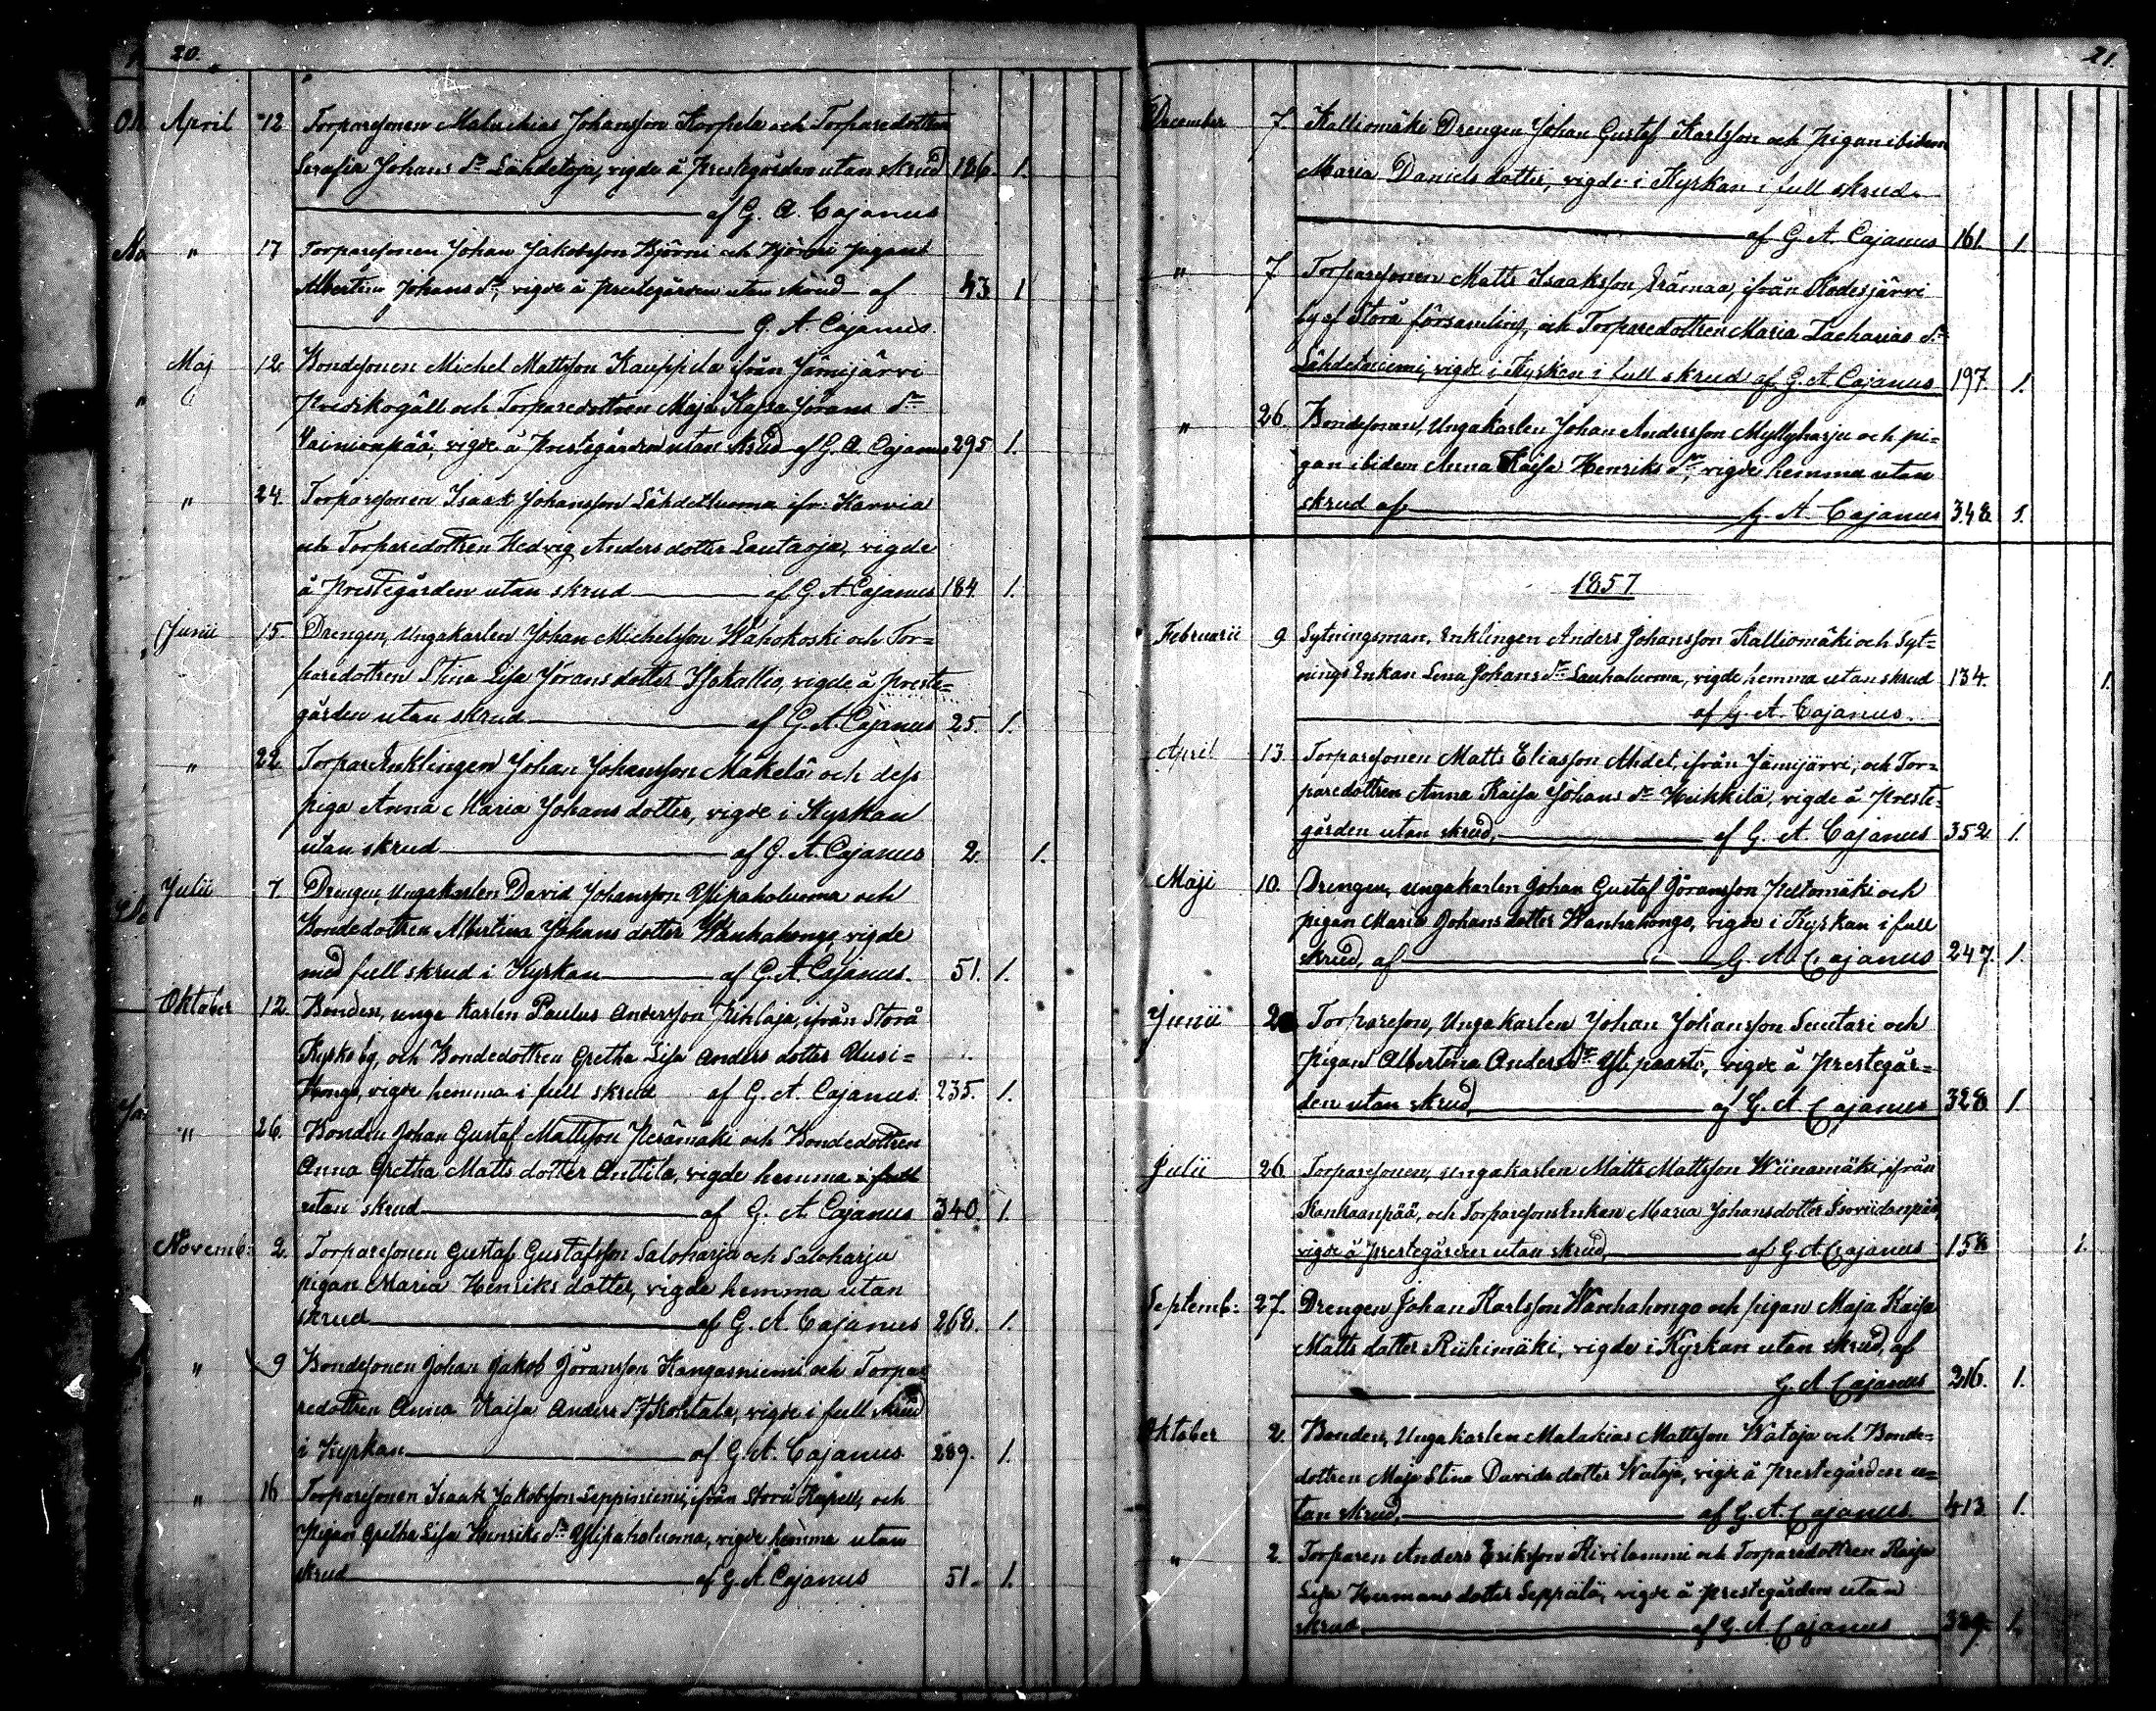 20.
April 12 Torparesonen Malachias Johansson Korpela och Torparedottren
Serafia Johans dr Lähdetoja, vigde å Prestgården utan skrud 186. 1.
af G. A. Cajanus
" 17 Torparesonen Johan Jakobsson Björni och Björni pigan
Albertina Johans dr, vigde å prestegården utan skrud af 43 1
G. A. Cajanus.
Maj 12 Bondesonen Michel Mattsson Kauppila ifrån Jämijärvi
Predikogäll och Torparedottren Maja Kajsa Jörans dr
Vainionpää, vigde å Prestegården utan skrud af G. A. Cajanus 295 1.
" 24. Torparesonen Isaak Johansson Lähdetluoma ifr: Karvia
och Torparedottren Hedvig Anders dotter Lautaoja, vigde
å Prestegården utan skrud af G. A. Cajanus 184 1.
Junii 15. Drengen, Ungakarlen Johan Michelsson Wahokoski och Tor=
paredottren Stina Lisa Jörans dotter Isokallio, vigde å preste=
gården utan skrud af G. A. Cajanus 25. 1.
" 22 Torpar Enklingen Johan Johansson Mäkelä och dess
piga Anna Maria Johans dotter, vigde i Kyrkan
utan skrud af G. A. Cajanus 2. 1.
Julii 7. Drengen, Ungakarlen David Johansson Ylipaholuoma och
Bondedottren Albertina Johans dotter Wanhahonge, vigde
med full skrud i Kyrkan af G. A. Cajanus. 51. 1.
Oktober 12. Bonden, unga karlen Paulus Andersson Pihlaja, ifrån Storå
Kyrko by, och Bondedottren Gretha Lisa Anders dotter Uusi=
Honga, vigde hemma i full skrud af G. A. Cajanus 235. 1.
" 26. Bonden Johan Gustaf Mattsson Perämäki och Bondedottren
Anna Gretha Matts dotter Anttila, vigde hemma i full
utan skrud af G. A. Cajanus 340. 1.
Novemb: 2. Torparesonen Gustaf Gustafsson Saloharju och Saloharju
pigan Maria Henriks dotter, vigde hemma utan
skrud af G. A. Cajanus 268. 1.
" 9 Bondesonen Johan Jakob Jöransson Kangasniemi och Torpa=
redottren Anna Kajsa Anders dr Kohtala, vigde i full skrud
i Kyrkan af G. A. Cajanus 289. 1.
" 16 Torparesonen Isaak Jakobsson Leppiniemi, ifrån Storå Kapell, och
Pigan Gretha Lisa Henriks dr Ylipaholuoma, vigde hemma utan
skrud af G. A. Cajanus 51. 1.
21.
December 7. Kalliomäki Drengen Johan Gustaf Karlsson och Pigan ibidem
Maria Daniels dotter, vigde i Kyrkan i full skrud.
af G. A. Cajanus 161 1.
" 7 Torparesonen Matts Isaaksson Prämaa, ifrån Kodesjärvi
by af Storå församling, och Torparedottren Maria Zacharias dr
Lähdetniemi, vigde i Kyrkan i full skrud af G. A. Cajanus 197. 1.
" 26. Bondesonen, Ungakarlen Johan Andersson Myllyharju och pi=
gan ibidem Anna Kaisa Henriks dr, vigde hemma utan
skrud af G. A. Cajanus 348 1.
1857
Februarii 9 Sytningsman, Enklingen Anders Johansson Kalliomäki och Syt=
nings Enkan Lena Johans dr Lauhaluoma, vigde hemma utan skrud 134. 1.
af G. A. Cajanus.
April 13. Torparesonen Matts Eliasson Ahdet, ifrån Jämijärvi, och Tor=
paredottren Anna Kaisa Johans dr Heikkilä, vigde å Preste=
gården utan skrud, af G. A. Cajanus 352 1.
Maji 10. Drengen, ungakarlen Johan Gustaf Jöransson Peltomäki och
pigan Maria Johans dotter Wanhahonga, vigde i Kyrkan i full
skrud, af G. A. Cajanus 247. 1.
Junii Torpareson, Ungakarlen Johan Johansson Luutari och
Pigan Albertina Anders dr Ylipaarti, vigde å Prestegår=
den utan skrud, af G. A. Cajanus 328 1.
Julii 26 Torparesonen, ungakarlen Matts Mattsson Wiinamäki, ifrån
Kankaanpää, och Torparesons Enkan Maria Johansdotter Isoviidanpää,
vigde å Prestegården utan skrud, af G. A. Cajanus 158 1.
Septemb: 27. Drengen Johan Karlsson Wanhahonga och pigan Maja Kaisa
Matts dotter Riihimäki, vigde i Kyrkan utan skrud, af
G. A. Cajanus 216. 1.
Oktober 2. Bonden, Ungakarlen Malakias Mattsson Wataja och Bonde=
dottren Maja Stina Davids dotter Wataja, vigde å Prestegården u=
tan skrud, af G. A. Cajanus 413 1.
" 2. Torparen Anders Eriksson Kivilammi och Torparedottren Kaisa
Lisa Hermans dotter Leppälä, vigde å prestegården utan
skrud af G. A. Cajanus 1.